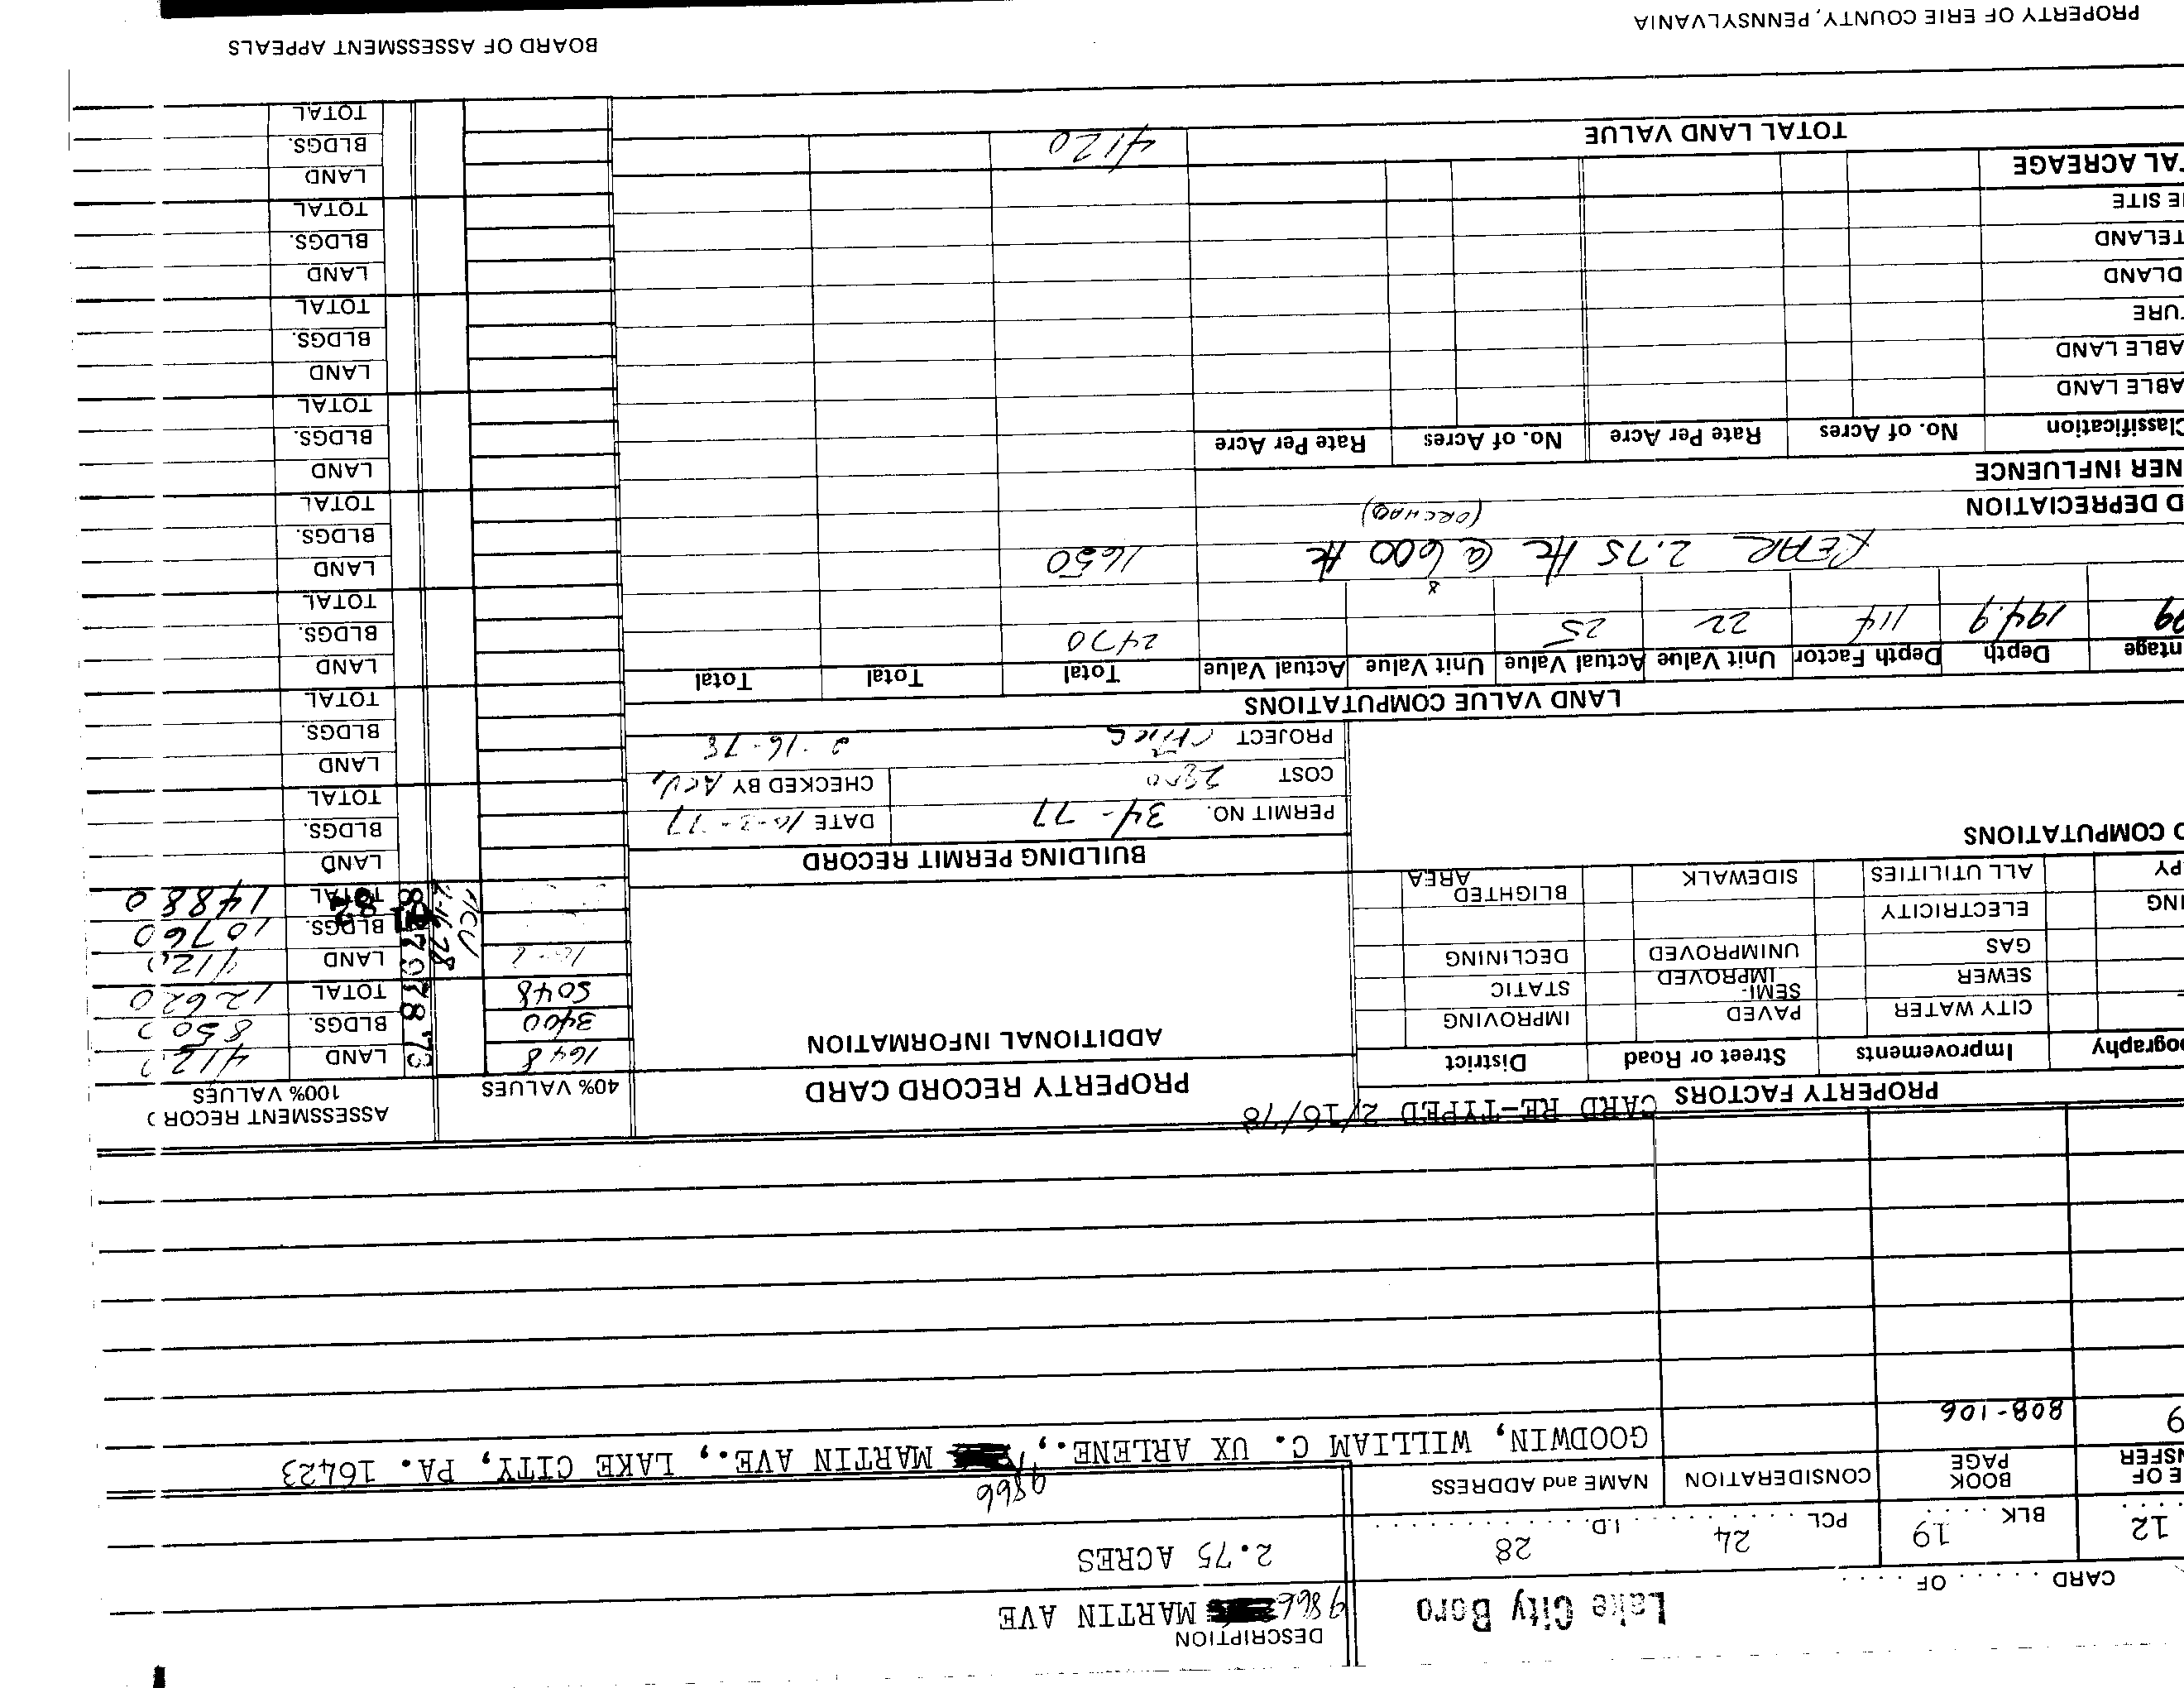 DESCRIPTION
CARD ..... OF .....
Lake City Boro
9866 MARTIN AVE
12 BLK 19 PCL 24 I.D. 28
2.75 ACRES
E OF
NSFER
BOOK
PAGE
CONSIDERATION
NAME and ADDRESS
9866
9 808-106 GOODWIN, WILLIAM C. UX ARLENE., MARTIN AVE., LAKE CITY, PA. 16423
PROPERTY FACTORS
CARD RE-TYPED 2/16/78
PROPERTY RECORD CARD
40% VALUES
ASSESSMENT RECORD
100% VALUES
ography Improvements Street or Road District
ADDITIONAL INFORMATION
CITY WATER PAVED IMPROVING
SEWER SEMI-IMPROVED STATIC
GAS UNIMPROVED DECLINING
ING ELECTRICITY
BLIGHTED AREA
PY ALL UTILITIES SIDEWALK
1648 '73 LAND 412
3400 BLDGS. 850
5048 TOTAL 12620
78 LAND 412
BLDGS. 10760
TOTAL 14880
D COMPUTATIONS
BUILDING PERMIT RECORD
PERMIT NO. 34-77 DATE 10-3-77
COST 2800 CHECKED BY ACV
PROJECT 2-16-78
LAND
BLDGS.
TOTAL
LAND
BLDGS.
TOTAL
LAND VALUE COMPUTATIONS
ntage Depth Depth Factor Unit Value Actual Value Unit Value Actual Value Total Total Total
99 194.9 114 22 25 2470
REAR 2.75 Ac @ 600 Ac 1650
(ORCHARD)
D DEPRECIATION
NER INFLUENCE
Classification No. of Acres Rate Per Acre No. of Acres Rate Per Acre
ABLE LAND
ABLE LAND
TURE
DLAND
TELAND
E SITE
TAL ACREAGE
TOTAL LAND VALUE 4120
LAND
BLDGS.
TOTAL
LAND
BLDGS.
TOTAL
LAND
BLDGS.
TOTAL
LAND
BLDGS.
TOTAL
LAND
BLDGS.
TOTAL
LAND
BLDGS.
TOTAL
PROPERTY OF ERIE COUNTY, PENNSYLVANIA
BOARD OF ASSESSMENT APPEALS